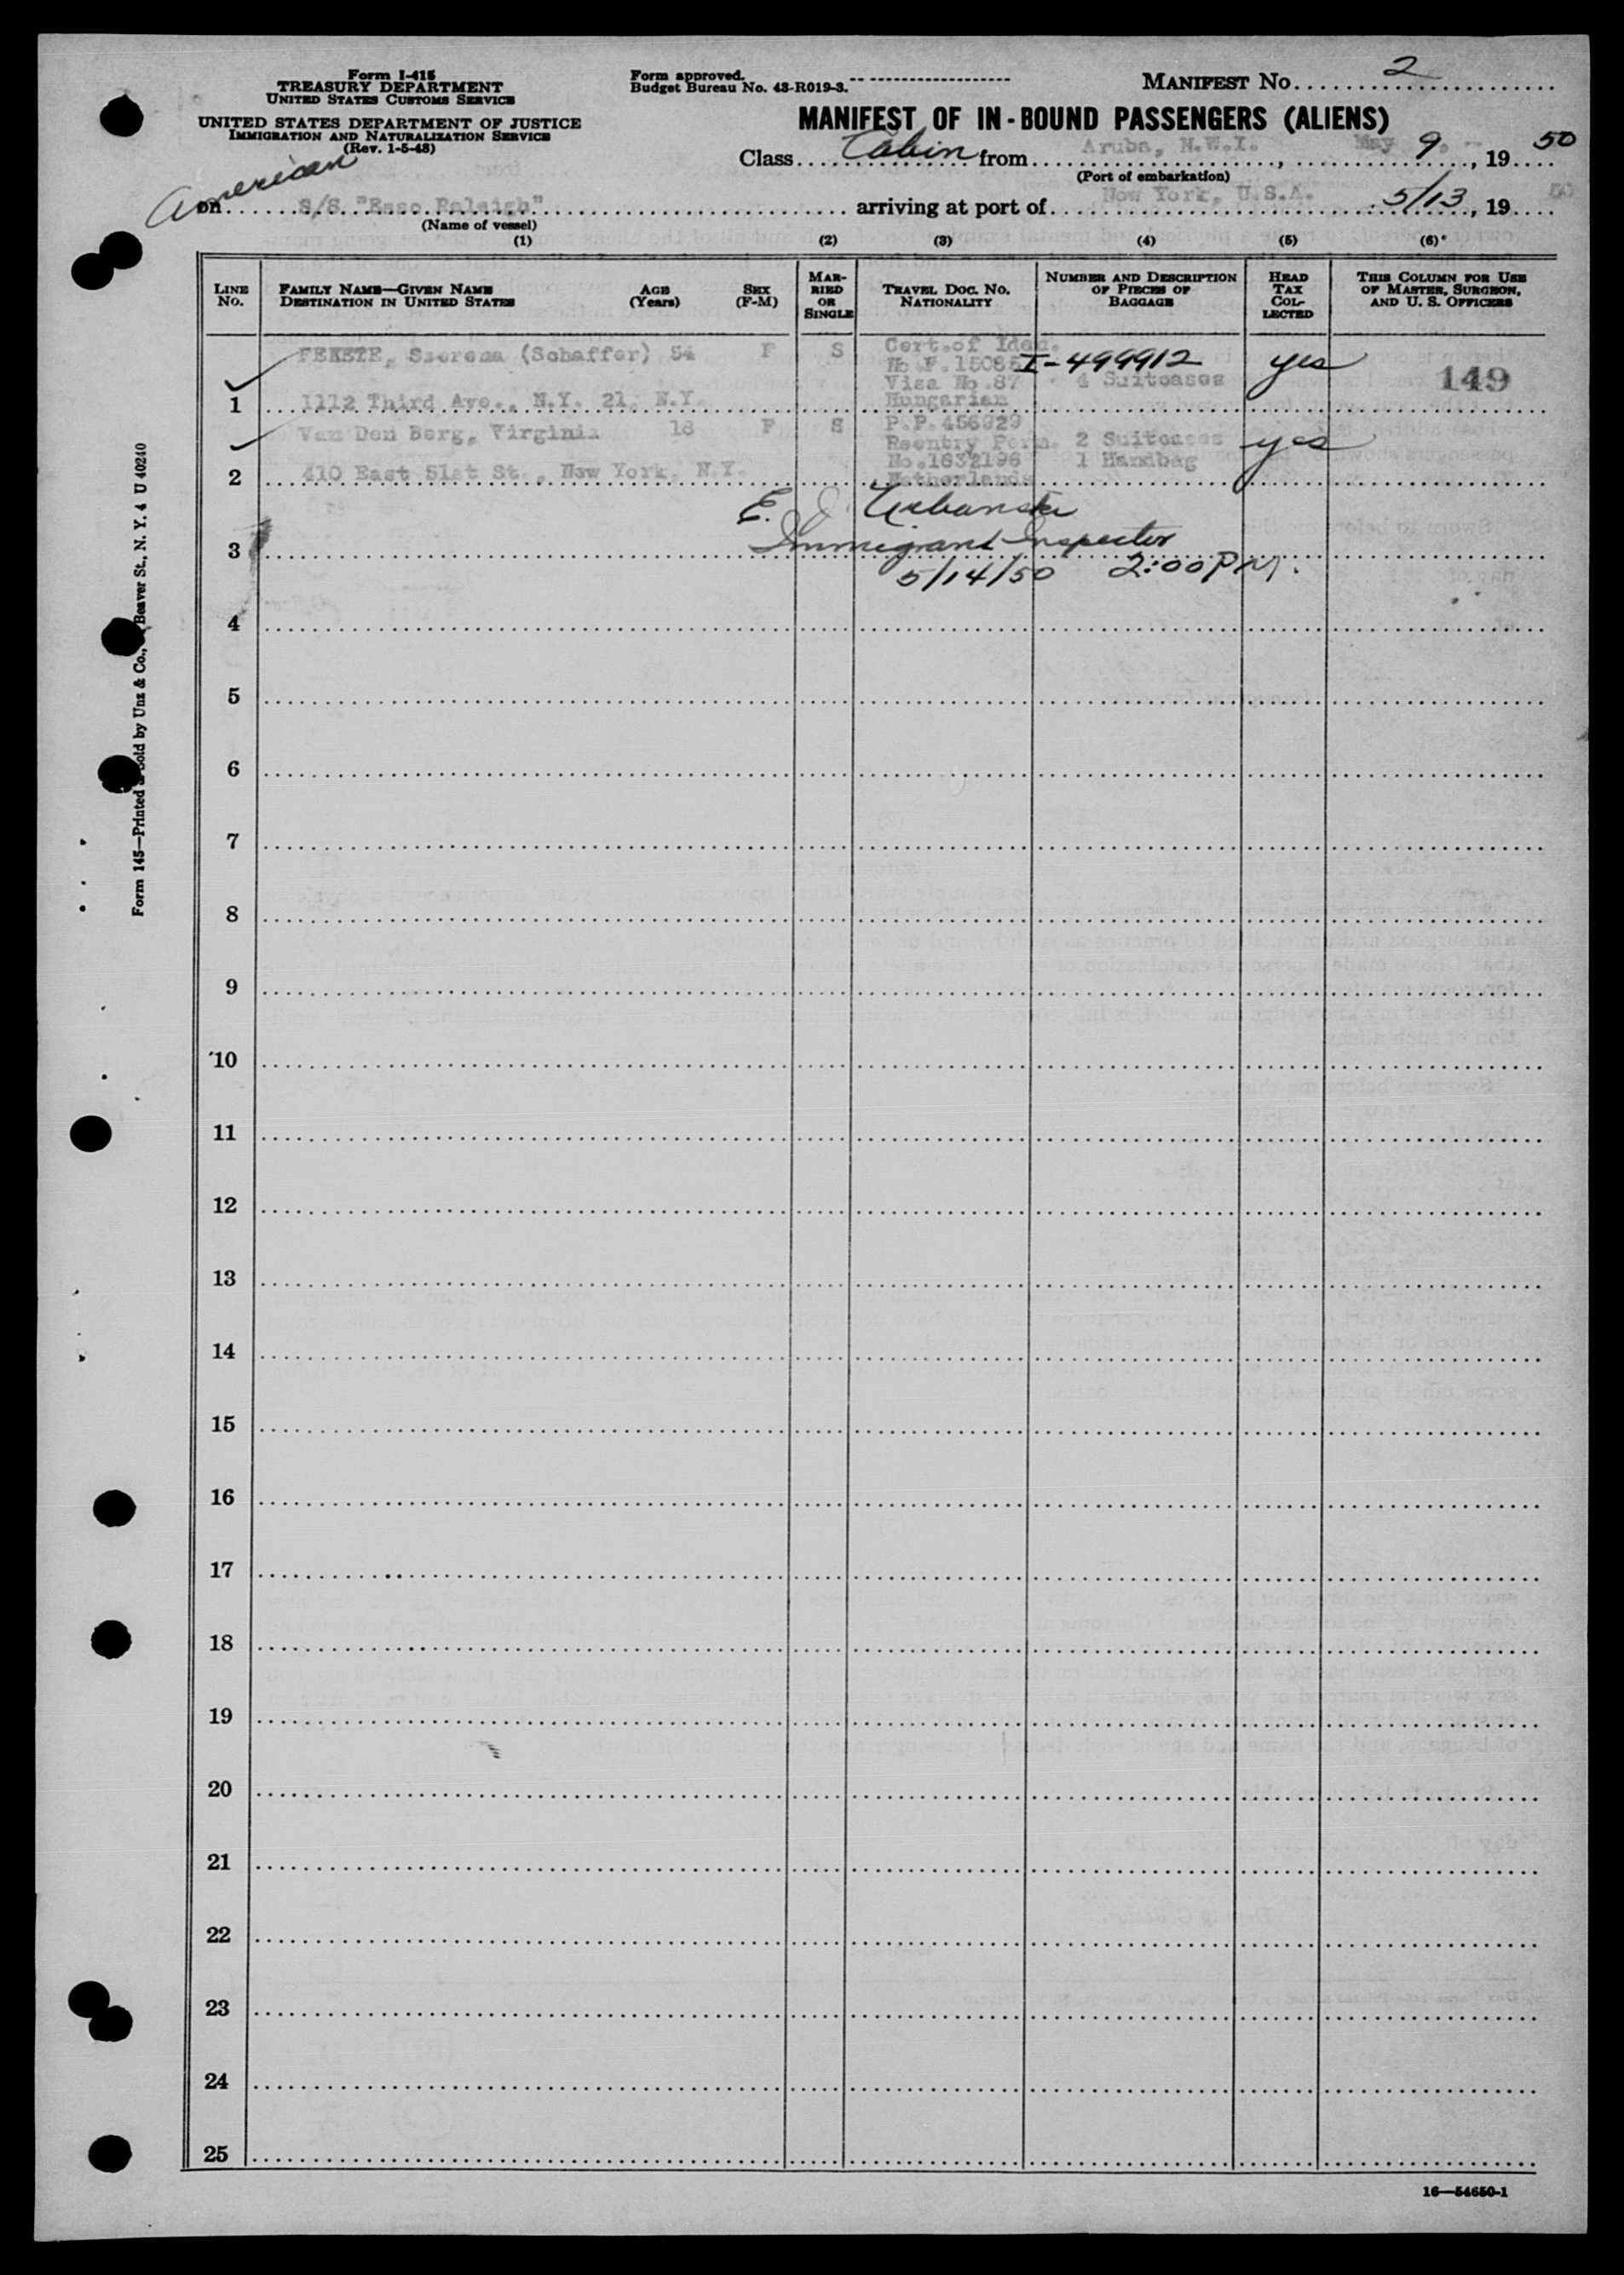 Form I-415
TREASURY DEPARTMENT
UNITED STATES CUSTOMS SERVICE
UNITED STATES DEPARTMENT OF JUSTICE
IMMIGRATION AND NATURALIZATION SERVICE
(Rev. 1-5-48)
Form approved.
Budget Bureau No. 43-R019-3.
MANIFEST No. 2
MANIFEST OF IN-BOUND PASSENGERS (ALIENS)
Class Cabin from Aruba, N.W.I., May 9, 19 50
(Port of embarkation)
American
on S/S "Esso Raleigh" arriving at port of New York, U.S.A. 5/13, 19 50
(Name of vessel)
(1) (2) (3) (4) (5) (6)
LINE No. FAMILY NAME—GIVEN NAME DESTINATION IN UNITED STATES AGE (Years) SEX (F-M) MARRIED OR SINGLE TRAVEL DOC. NO. NATIONALITY NUMBER AND DESCRIPTION OF PIECES OF BAGGAGE HEAD TAX COLLECTED THIS COLUMN FOR USE OF MASTER, SURGEON, AND U. S. OFFICERS
FEKETE, Szerena (Schaffer) 54 F S Cert.of Iden.
No F. 15085 I-499912 yes
Visa No.87 4 Suitcases 149
1 1112 Third Ave., N.Y. 21, N.Y. Hungarian
Van Den Berg, Virginia 18 F S P.P. 456929
Reentry Perm. 2 Suitcases yes
No.1632196 1 Handbag
2 410 East 51st St., New York, N.Y. Netherlands
E. J. Urbanski
3 Immigrant Inspector
5/14/50 2:00 PM.
4
5
6
7
8
9
10
11
12
13
14
15
16
17
18
19
20
21
22
23
24
25
16—54650-1
Form 145—Printed & Sold by Unz & Co., Beaver St., N. Y. 4 U 40240